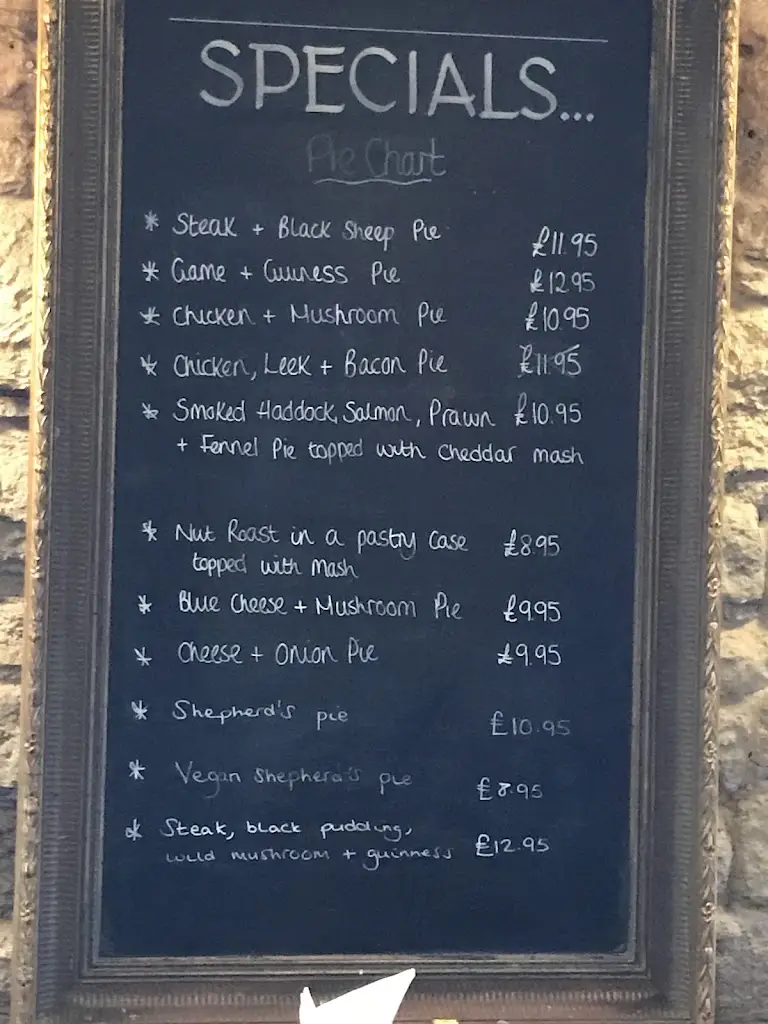 SPECIALS...
Pie Chart
* Steak + Black Sheep Pie £11.95
* Game + Guiness Pie £12.95
* Chicken + Mushroom Pie £10.95
* Chicken, Leek + Bacon Pie £11.95
* Smoked Haddock, Salmon, Prawn £10.95
+ Fennel Pie topped with cheddar mash
* Nut Roast in a pastry case £8.95
topped with mash
* Blue Cheese + Mushroom Pie £9.95
* Cheese + Onion Pie £9.95
* Shepherd's pie £10.95
* Vegan Shepherd's pie £8.95
* Steak, black pudding,
wild mushroom + guinness £12.95